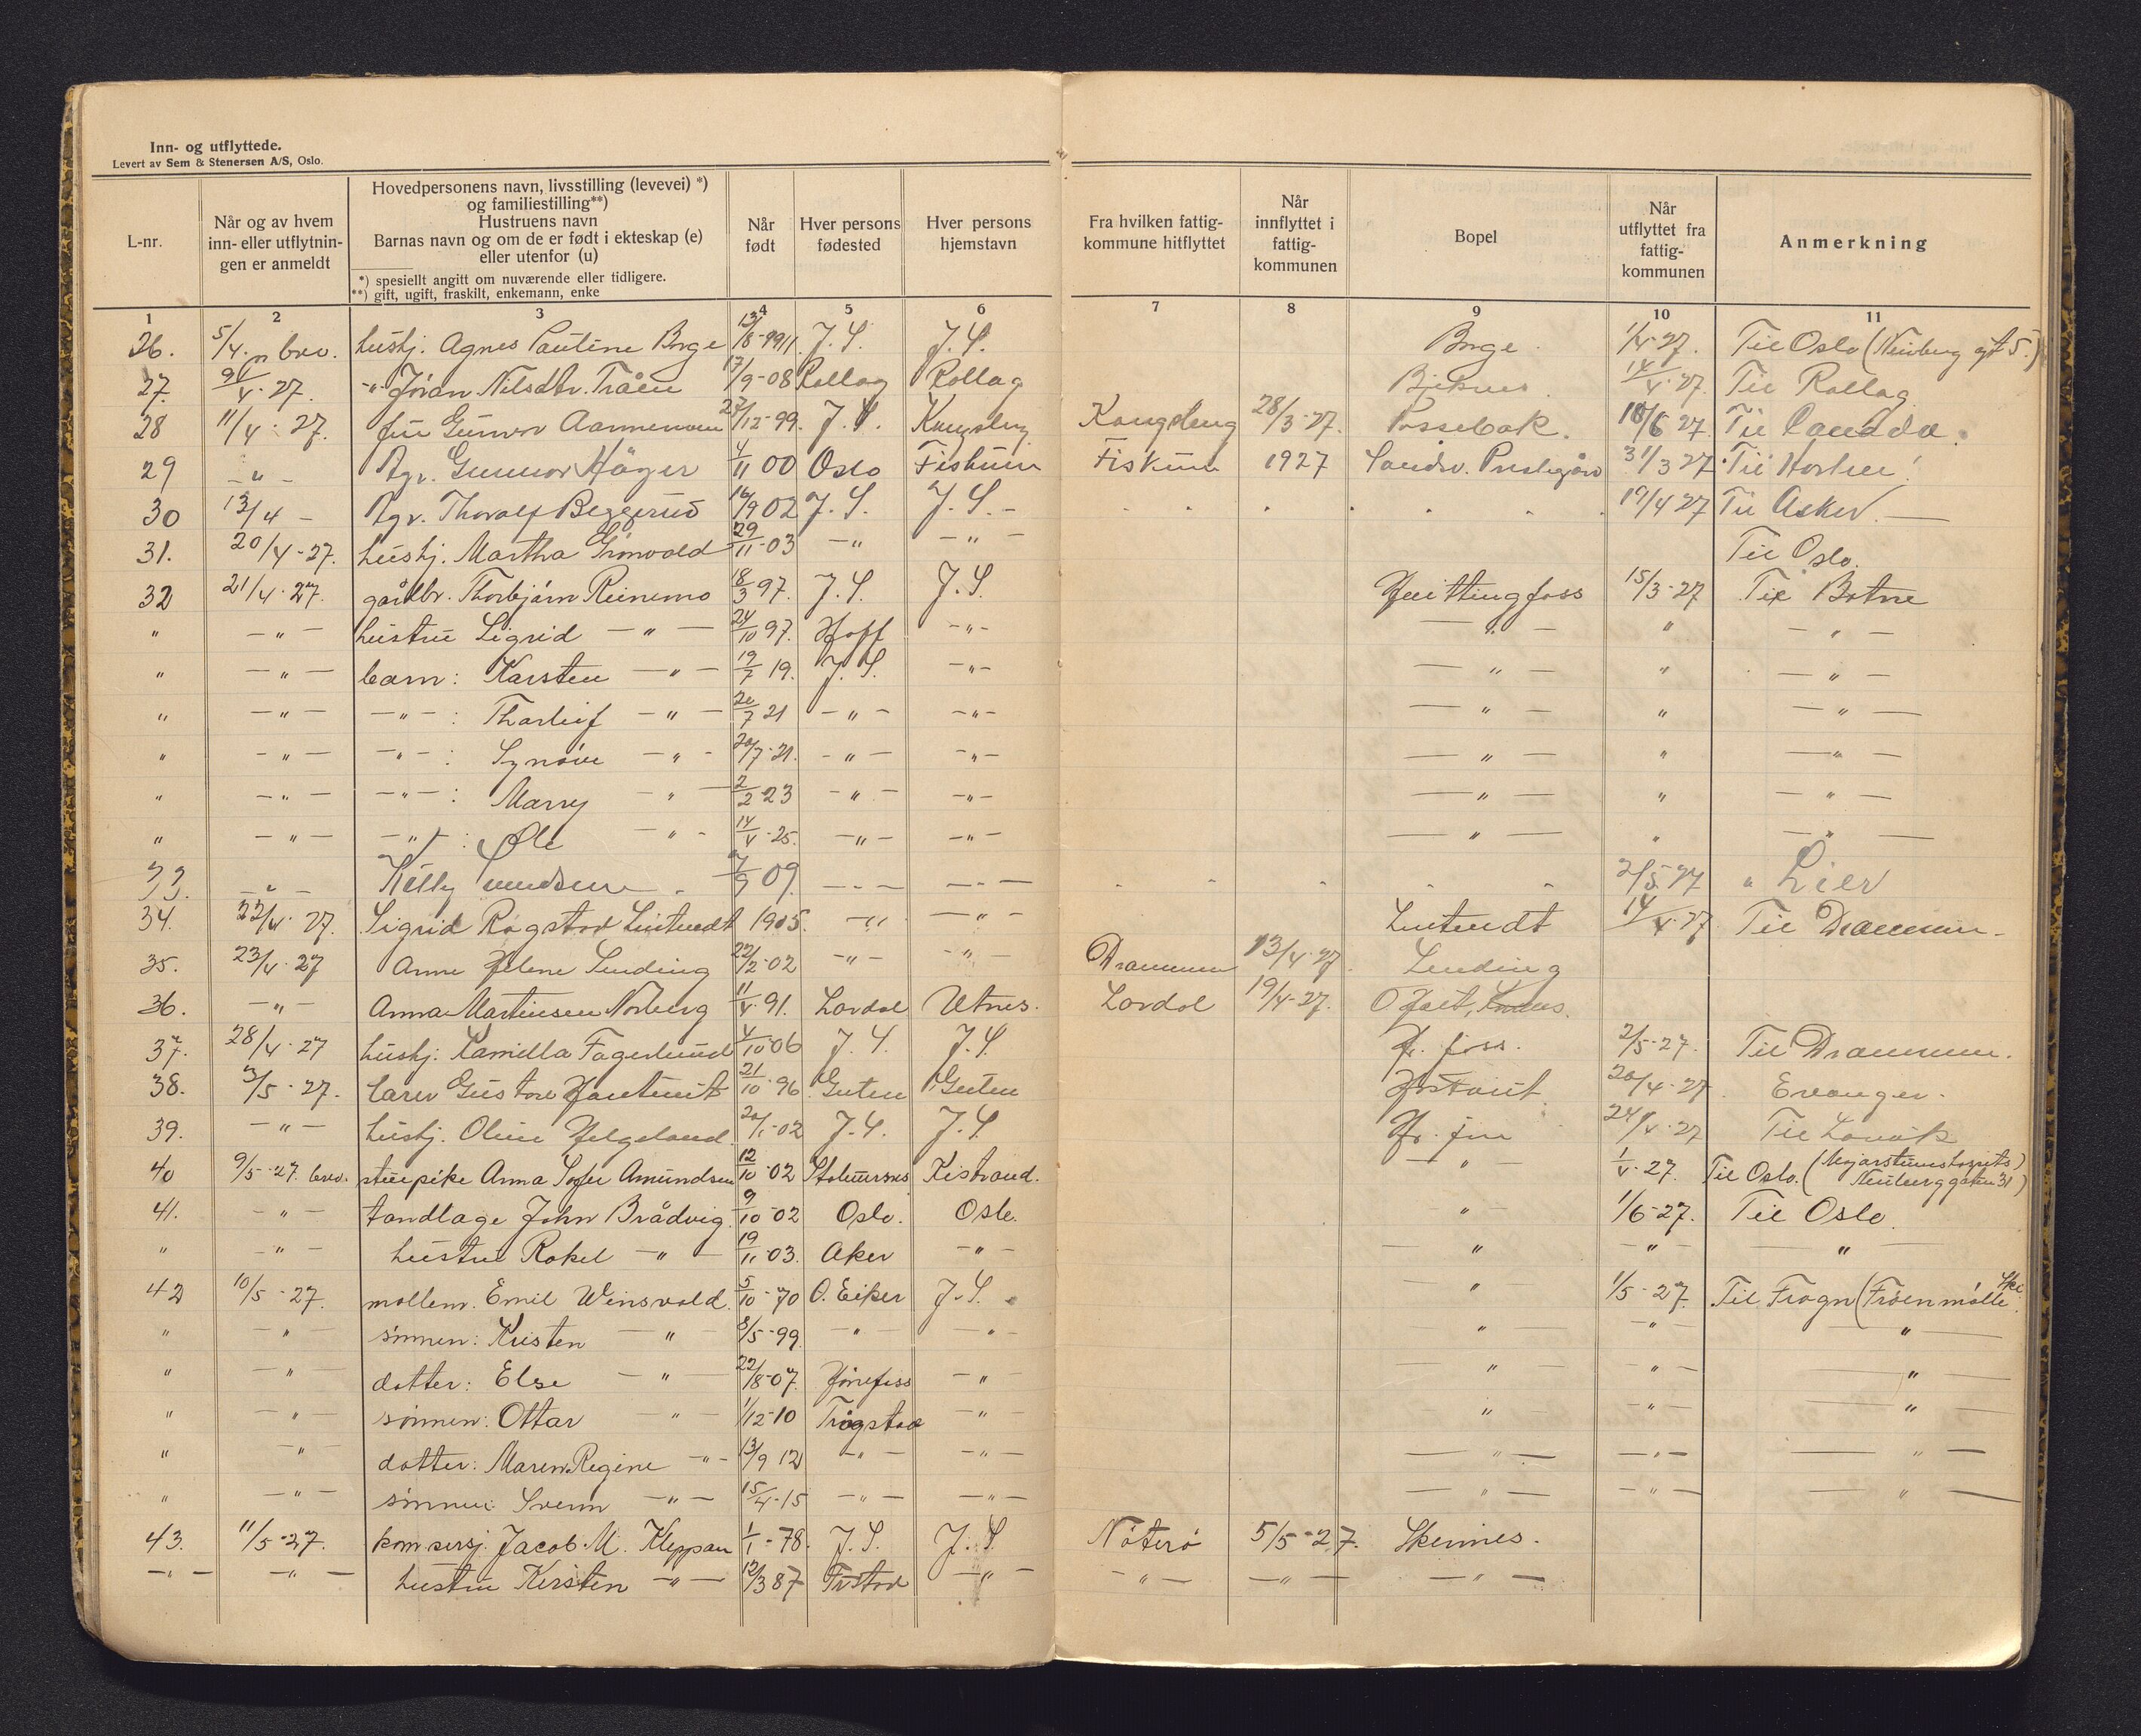 Inn- og utflyttede.
Levert av Sem & Stenersen A/S, Oslo.
L-nr.
Når og av hvem
inn- eller utflytnin-
gen er anmeldt
Hovedpersonens navn, livsstilling (levevei) *)
og familiestilling**)
Hustruens navn
Barnas navn og om de er født i ekteskap (e)
eller utenfor (u)
*) spesiellt angitt om nuværende eller tidligere.
**) gift, ugift, fraskilt, enkemann, enke
Når
født
Hver persons
fødested
Hver persons
hjemstavn
Fra hvilken fattig-
kommune hitflyttet
Når
innflyttet i
fattig-
kommunen
Bopel
Når
utflyttet fra
fattig-
kommunen
Anmerkning
1 2 3 4 5 6 7 8 9 10 11
26. 5/4. brev. hushj. Agnes Pauline Borge J. S. J. S. Borge 1/4-27. Til Oslo (Neuberg gt 5.)
27. 9/4-27. -"- Jöran Nilsdtr. Tråen 17/9-08 Rollag Rollag 14/4-27. Til Rollag
28 11/4-27. Gunvor 27/12-99. J. S. Kongsberg Kongsberg 28/3-27. Possebak. 18/6 27. Til Canada.
29 -"- Agr. Gunnar Häger 4/11 00 Oslo Fiskum Fiskum 1927 Sandsv. Prestegård 31/3 27. Til Horten!
30 13/4 - Agr. Thoralf Beggerud 16/9 02 J. S. J. S. - 19/4 27 Til Asker. —
31. 20/4-27. hushj. Martha Grönvold 29/11-03 -"- -"- Til Oslo.
32 21/4-27. gårdbr. Thorbjörn Reinemo 18/3 97. J. S. J. S. Hvittingfoss 15/3-27 Til Botne
" -"- hustru Sigrid -"- 24/10 97. Hoff -"- -"- " -"-
" -"- barn: Karsten -"- 19/7 19. J. S. -"- -"- " -"-
" -"- -"-: Thorleif -"- 20/7 21 -"- -"- -"- " -"-
" -"- -"-: Synöve -"- 20/7-21. -"- -"- -"- " -"-
" -"- -"-: Marry -"- 2/2-23 -"- -"- -"- " -"-
" -"- -"-: Ole -"- 14/4-25. -"- -"- -"- " -"-
33. -"- 09. -"- -"- 2/5-27 " Lier
34. 22/4-27. Sigrid Rogstad Lintvedt 1905. -"- -"- Lintvedt 14/4-27 Til Drammen.
35. 23/4-27 Anne Helene Sending 22/2-02 -"- -"- Drammen 13/4-27. Sending
36. -"- Anna Martinsen Norberg 11/4-91. Lardal Utnes. Lardal 19/4-27.
37. 28/4-27 hushj. Kamilla Fagerlund 4/10-06 J. S. J. S. H. foss. 2/5-27. Til Drammen.
38. 3/5-27. lærer Gustav 21/10-96. 20/4-27. Evanger.
39. -"- hushj. Oline Helgeland. 20/1-02 J. S. J. S. 24/4-27
40 9/5-27. brev. stuepike Anna Sofie Amundsen 12/10-02 Kistrand. -"- 1/4-27. Til Oslo. (Majorstuens hospits Neuberggaten 31)
41. -"- tandlæge John Brådvig. 9/10-02 Oslo. Oslo. " - 1/6-27. Til Oslo.
" -"- hustru Rakel -"- 19/11-03. Aker -"- -"- -"- "
42 10/5-27. møllem. Emil Winsvold. 5/10-70 O. Eiker J. S. -"- 1/5-27. Til Frogn (Fröen mölle Ski
" -"- sönnen: Kristen -"- 8/5-99. -"- -"- -"- -"- "
" -"- datter: Else -"- 22/8-07. Hönefoss -"- -"- -"- "
" -"- sönnen: Ottar -"- 1/12-10 Trögstad -"- " -"- "
" -"- datter: Maren Regine -"- 13/9 12 -"- -"- -"- -"- -"-
" -"- sönnen: Svenn -"- 15/4-15 -"- -"- -"- -"- -"-
43. 11/5-27. kom.sersj. Jacob M. Kleppan 1/1-78. J. S. J. S. Nöterö 5/5-27. Skennes.
-"- -"- hustru Kirsten -"- 12/3 87 -"- -"- -"- -"-